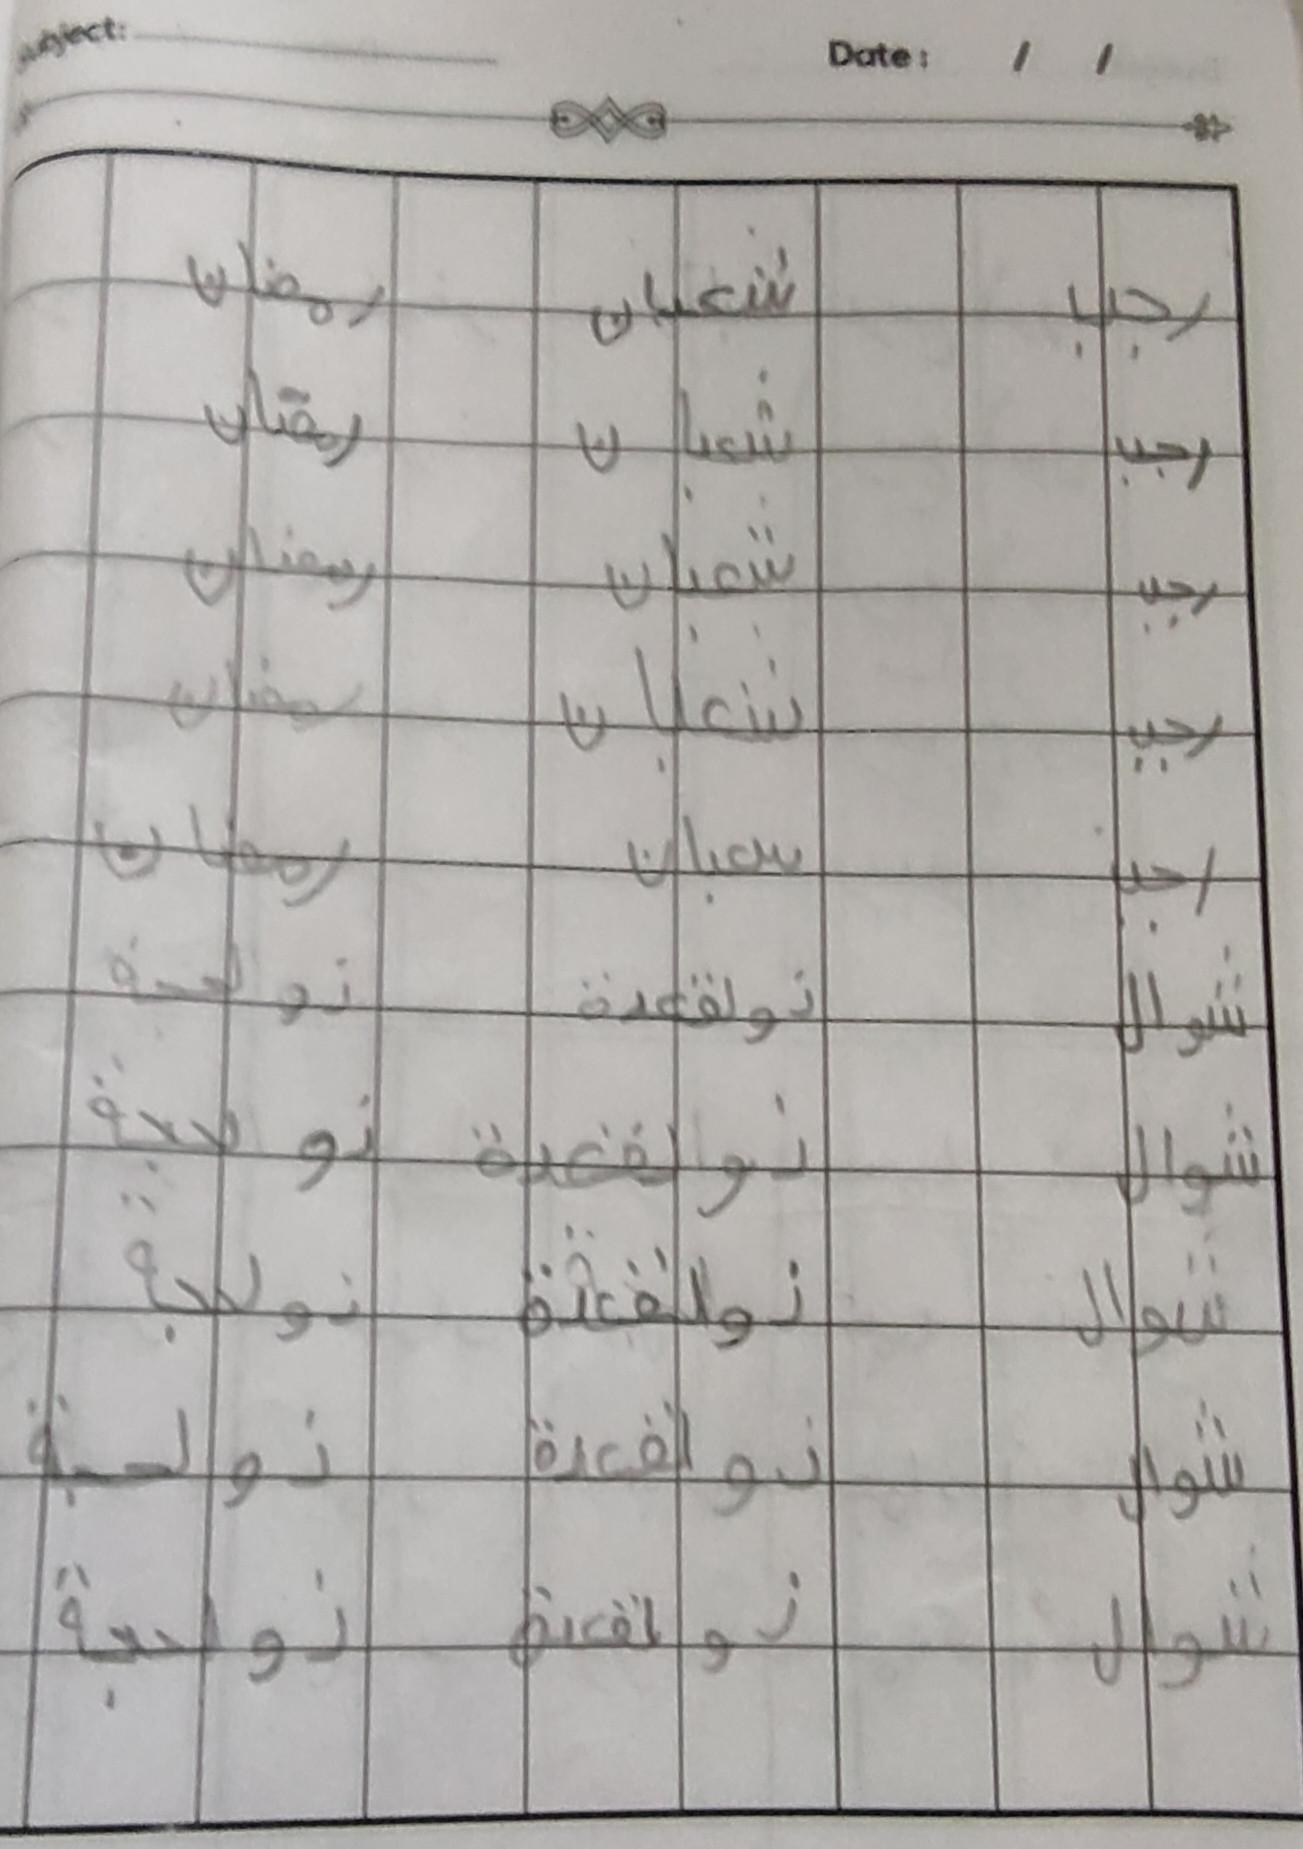 Subject: Date: / /
رجب شعبان رمضان
رجب شعبان رمضان
رجب شعبان رمضان
رجب شعبان رمضان
رجب سعبان رمضان
شوال ذولقعدة ذولحجة
شوال ذولقعدة ذولحجة
شوال ذولقعدة ذولحجة
شوال ذولقعدة ذولحجة
شوال ذولقعدة ذولحجة